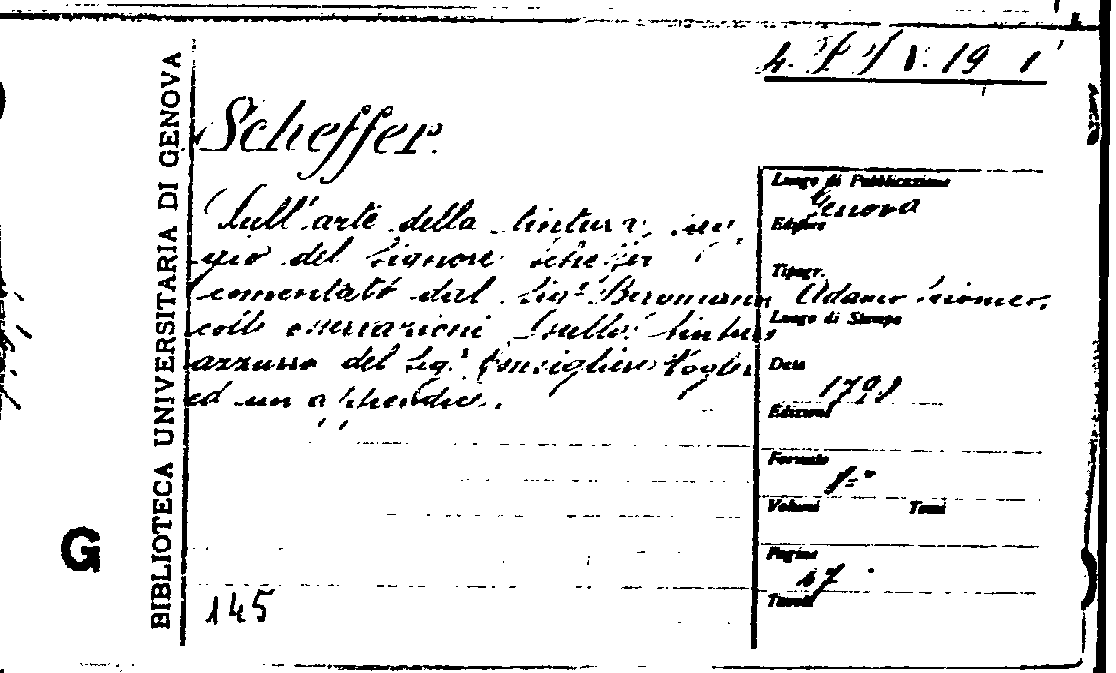 4. V. 19 1
BIBLIOTECA UNIVERSITARIA DI GENOVA
G
Scheffer.
Sull'arte della tintura,
del Signore Scheffer
comentato dal Sigr. Bergmann
colle osservazioni sulla tintura
azzurra del Sigr. Consigliere Vogler
ed un appendice.
145
Luogo di Pubblicazione
Genova
Editore
Tipogr.
Adamo
Luogo di Stampa
Data
1798
Edizioni
Formato
8=°
Volumi Tomi
Pagine
47
Tavole